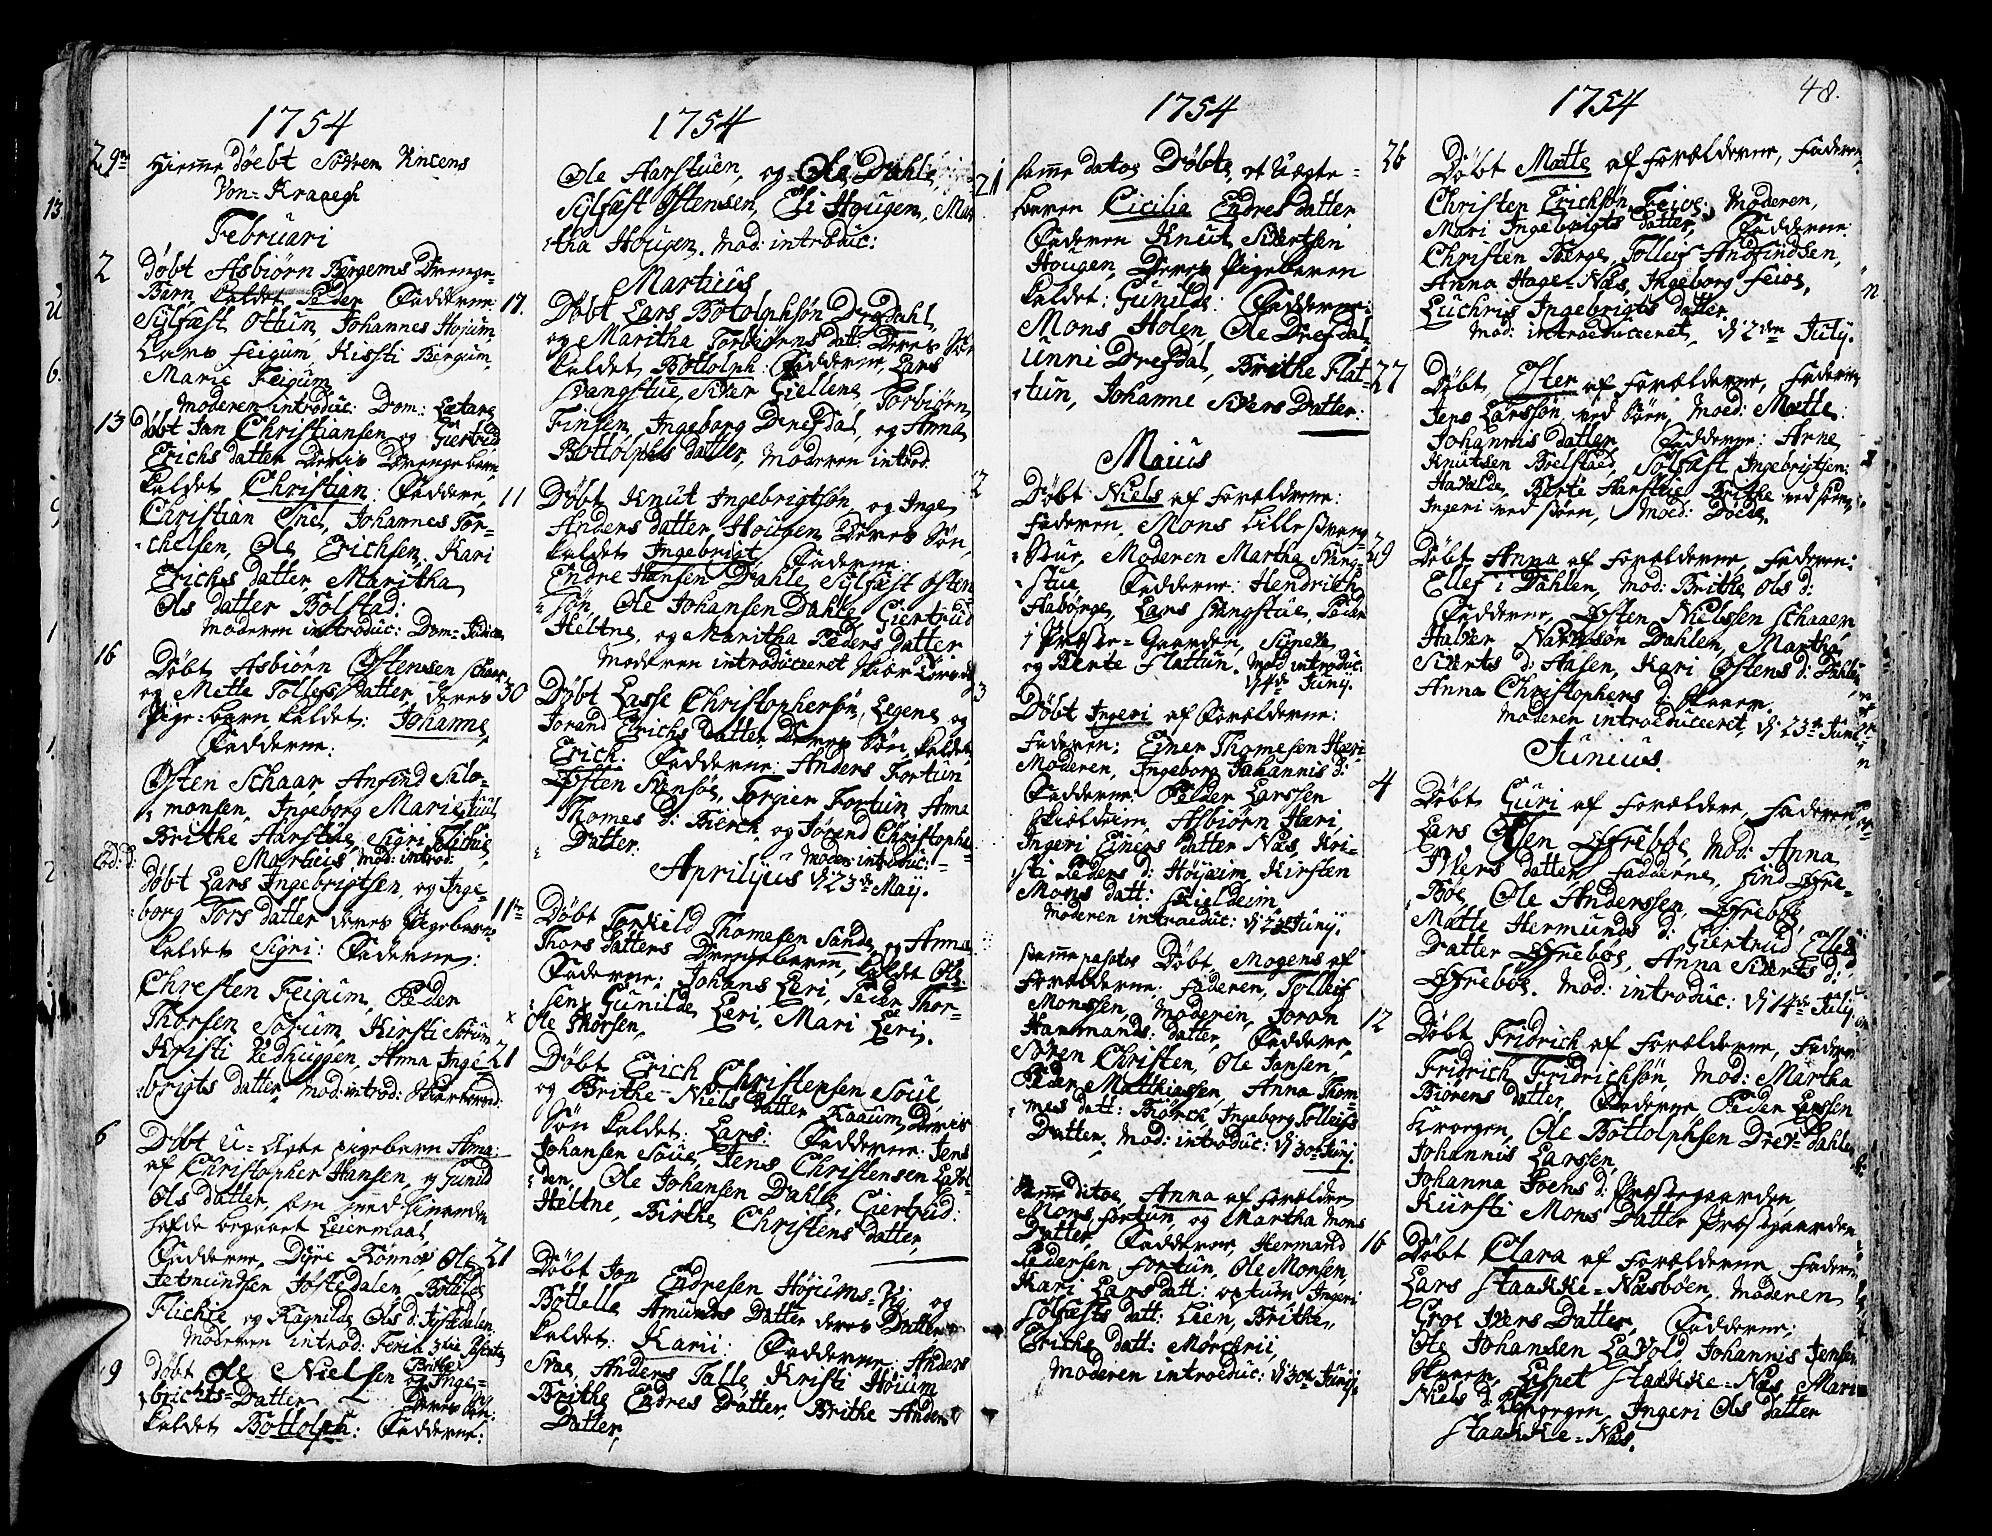 1754
29de Hjemme Döebt Søfren Vincens
Von-Kraagh
Februari
2 Döbt Asbiörn Bergems Drenge-
Barn, kaldet Peder Fadderne
Sylfæst Ottun, Johannes Højum
Lars Feigum, Kisti Bergum,
Marie Feigum
Moderen introduc: Dom: Lætare
13 Döbt Jan Christiansen og Giertrud
Erichs datter Deris Drengebarn,
kaldet Christian: Faddere,
Christian Snel, Johannes Tor-
chelsen, Ole Erichsen, Kari
Erichs datter, Maritha
Ols datter Bolstad:
Moderen introduc: Dom: Judica
16 Döbt Asbiörn Östensen Schaar,
og Mette Tollefs Datter, deres
Pige-barn kaldet: Johanne,
Fadderne:
Östen Schaar Anfind Salo-
monsen, Ingeborg Marie
Brithe Aarstue, Sigri
Martius Mod: introd:
Eod: d: Döbt Lars Ingebrigtsen, og Inge-
borg Tors datter deres Pigebarn
kaldet Sigri: Faderne:
Chresten Feigum, Peder
Thorsen Sörum, Kirsti Sörum
Kristi Vedhuggen, Anna Inge-
brigts Datter, mod: introd:
6 Döbt u-ægte pigebarn Anna:
af Christopher Hansen, og Gunild
Ols datter, som med hinanden
hafde begaaet Leiermaal,
Fadderne, Dyre Rönnei, Ole
Jetmundsen Jostedalen, Botilde
Flichie, og Ragnilde Ols d: Jostedalen
Moderen introd: Feria 3tie
9 Döbt Ole Nielsen og Brithe Inge-
brichts-Datter Deres Sön:
kaldet Bottolph: Fadderne:
1754
Ole Aarstuen, og Ole Dahle,
Sylfæst Östensen, Eli Hougen, Mar-
tha Hougen. Mod: introduc:
Martius
17. Döbt Lars Botolphsön Dresdahl
og Maritha Torbiörns datt: Deres Sön
kaldet Bottolph: Fadderne, Lars
Svangstue, Siver Giellene, Torbiörn
Finsen, Ingeborg Dresdal, og Anna
Bottolphs datter, Moderen introd.
11 Döbt Knut Ingebrigtsön og Inge
Anders datter Hougen Deres Sön,
kaldet Ingebrigt, Faderne:
Endre Hansen Dahle, Sylfæst Östen-
sön, Ole Johansen Dahle, Giertrud
Heltne, og Maritha Peders Datter
Moderen introduceeret Skiær Torsdag
30 Döbt Lasse Christophersön, Legene og
Jorand Erichs Datter Deres Sön, kaldet
Erich. Fadderne: Anders Fortun
Östen Svensöe, Torgier Fortun, Anna
Thomes d: Bierck, og Jörend Christophe-
Datter. Moder introduc:
Aprilius d: 23de Maij.
11te Döbt Torkild Thomesen Sande, og Anna
Thors Datters Drengebarn, kaldet Ole
Fadderne: Johans Leri, Peder Thor-
sen, Gunilde Leri, Mari Leri.
Ole Thorsen,
21 Döbt Erich Christensen Soue,
og Brithe Niels Datter Kaaum, Deris
Sön kaldet: Lars: Fadderne: Jens
Johansen Soue, Jens Christensen Lavol-
den, Ole Johansen Dahle, Giertrud:
Heltne, Birthe Christens Datter,
21 Döbt Jon Endresen Højums-Eje og
Bottelle Amunds Datter deres Datter
kaldet: Karii: Fadderne: Anders
Svae, Anders Talle, Kristi Höium
Brithe Endres Datter, Brithe Anders
Datter,
1754
21 samme datos Döbt, et Uægte-
barn Cicilia Endres datter
Faderen Knut Sivertsen
Hougen, Deres Pigebaren
kaldet: Gunilde: Fadderne:
Mons Holen, Ole Dresdal,
unni Dresdal, Brithe Flat-
tun, Johanne Sivers Datter:
Maius
2 Döbt Niels af Forældrene:
Faderen, Mons Lille Svang-
stue, Moderen Martha Svang-
stue Fadderne: Hendrich
Aabörge, Lars Svangstue, Peder
i Præste-Gaarden, Synneve
og Berte Flattun. Mod introduc:
d: 4de Junij.
3 Döbt Ingeri af Forældrene:
Faderen: Einer Thomesen Hæri,
Moderen, Ingeborg Johannis d:
Fadderne: Peder Larssen
Skioldeim, Asbiörn Hæri,
Ingeri Einers datter Næs, Kri-
sti Peders d: Höjheim, Kirsten
Mons datt: Skieldeim
Moderen introduc: d: 23de Junij.
samme datos Döbt Mogens af
Forældrene: Faderen, Tollef
Monssen, Moderen, Joran
Hammonds: datter, Faddere,
Sören Christen, Ole Jansen,
Peder Matthiassen, Anna Thom-
mes datt: Biörck, Ingeborg Tollefs
Datter, Mod: introduc: d: 30te Junij.
samme ditoe, Anna af Forældre
Mons Fortun, og Martha Mons
Datter, Fadderne, Hermand
Pedersen Fortun, Ole Monsen,
Kari Lars datt: optun, Ingeri
Solfæsts datt: Lien, Brithe
Erichs datt: Mörchrii,
Moderen introduc: d: 30te Junij
1754 48.
26 Döbt Mætte af Forælderne, Faderen
Christen Erichsön Feioe. Moderen,
Mari Ingebrigts datter, Fadderne:
Christen Berge, Tollef Andfindsen,
Anna Hage-Næs, Ingeborg Feios,
Luchris Ingebrigts datter.
Mod: introduceret, d: 2den July.
27 Döbt Ester af Forældrene, Faderen
Jens Larssön ved Söen, Moed: Mætte
Johannis datter Fadderne: Arne
Knutsen Bolstaed, Solfæst Ingebrigtsen:
Havalde, Berte Harstue, Brithe ved Söen,
Ingeri ved Söen, Moed: Döede.
29 Döbt Anna af Forældrene, Faderen:
Ellef i Dahlen, Mod: Brithe Ols d:
Fadderne, Östen Nielssen Schaaen
Halver Dahlen, Martha
Siverts d: Hasen, Kari Östens d: Dahlen
Anna Christophers d: Skaarn.
Moderen introduceeret, d: 23de Junij
Junius.
4 Döbt Guri af Forældere, Faderen
Lars Olsen Öfreböe, Mod: Anna
Ivers datter Fadderne, Find Öfre-
Böe, Ole Anderssen, Öfreböe,
Matte Hermunds d: Giertrud Ellefs
Datter Öfreböe, Anna Siverts d:
Öfreböe. Mod: introduc: d: 14de July.
12 Döbt Fridrich af Forældrene, Faderen
Fridrich Fridrichsön, Mod: Märtha
Biörens datter, Fadderne Peder Larssen
Kroegen, Ole Bottolphsen Drev-Dahlen,
Johannis Larssen,
Johanna Joens d: Præstegaarden,
Kürsti Mons Datter Præstgaarden
16 Döbt Clara af Forældrene Faderen
Lars Staakke-Næsböen, Moderen
Groe Ivers Datter, Fadderne;
Ole Johansen Lavold, Johannis Jensen
Skaarn, Lispet Staakke-Næs, Mari
Niels d: Kroegen, Ingeri Ols datter
Staakke-Næs.